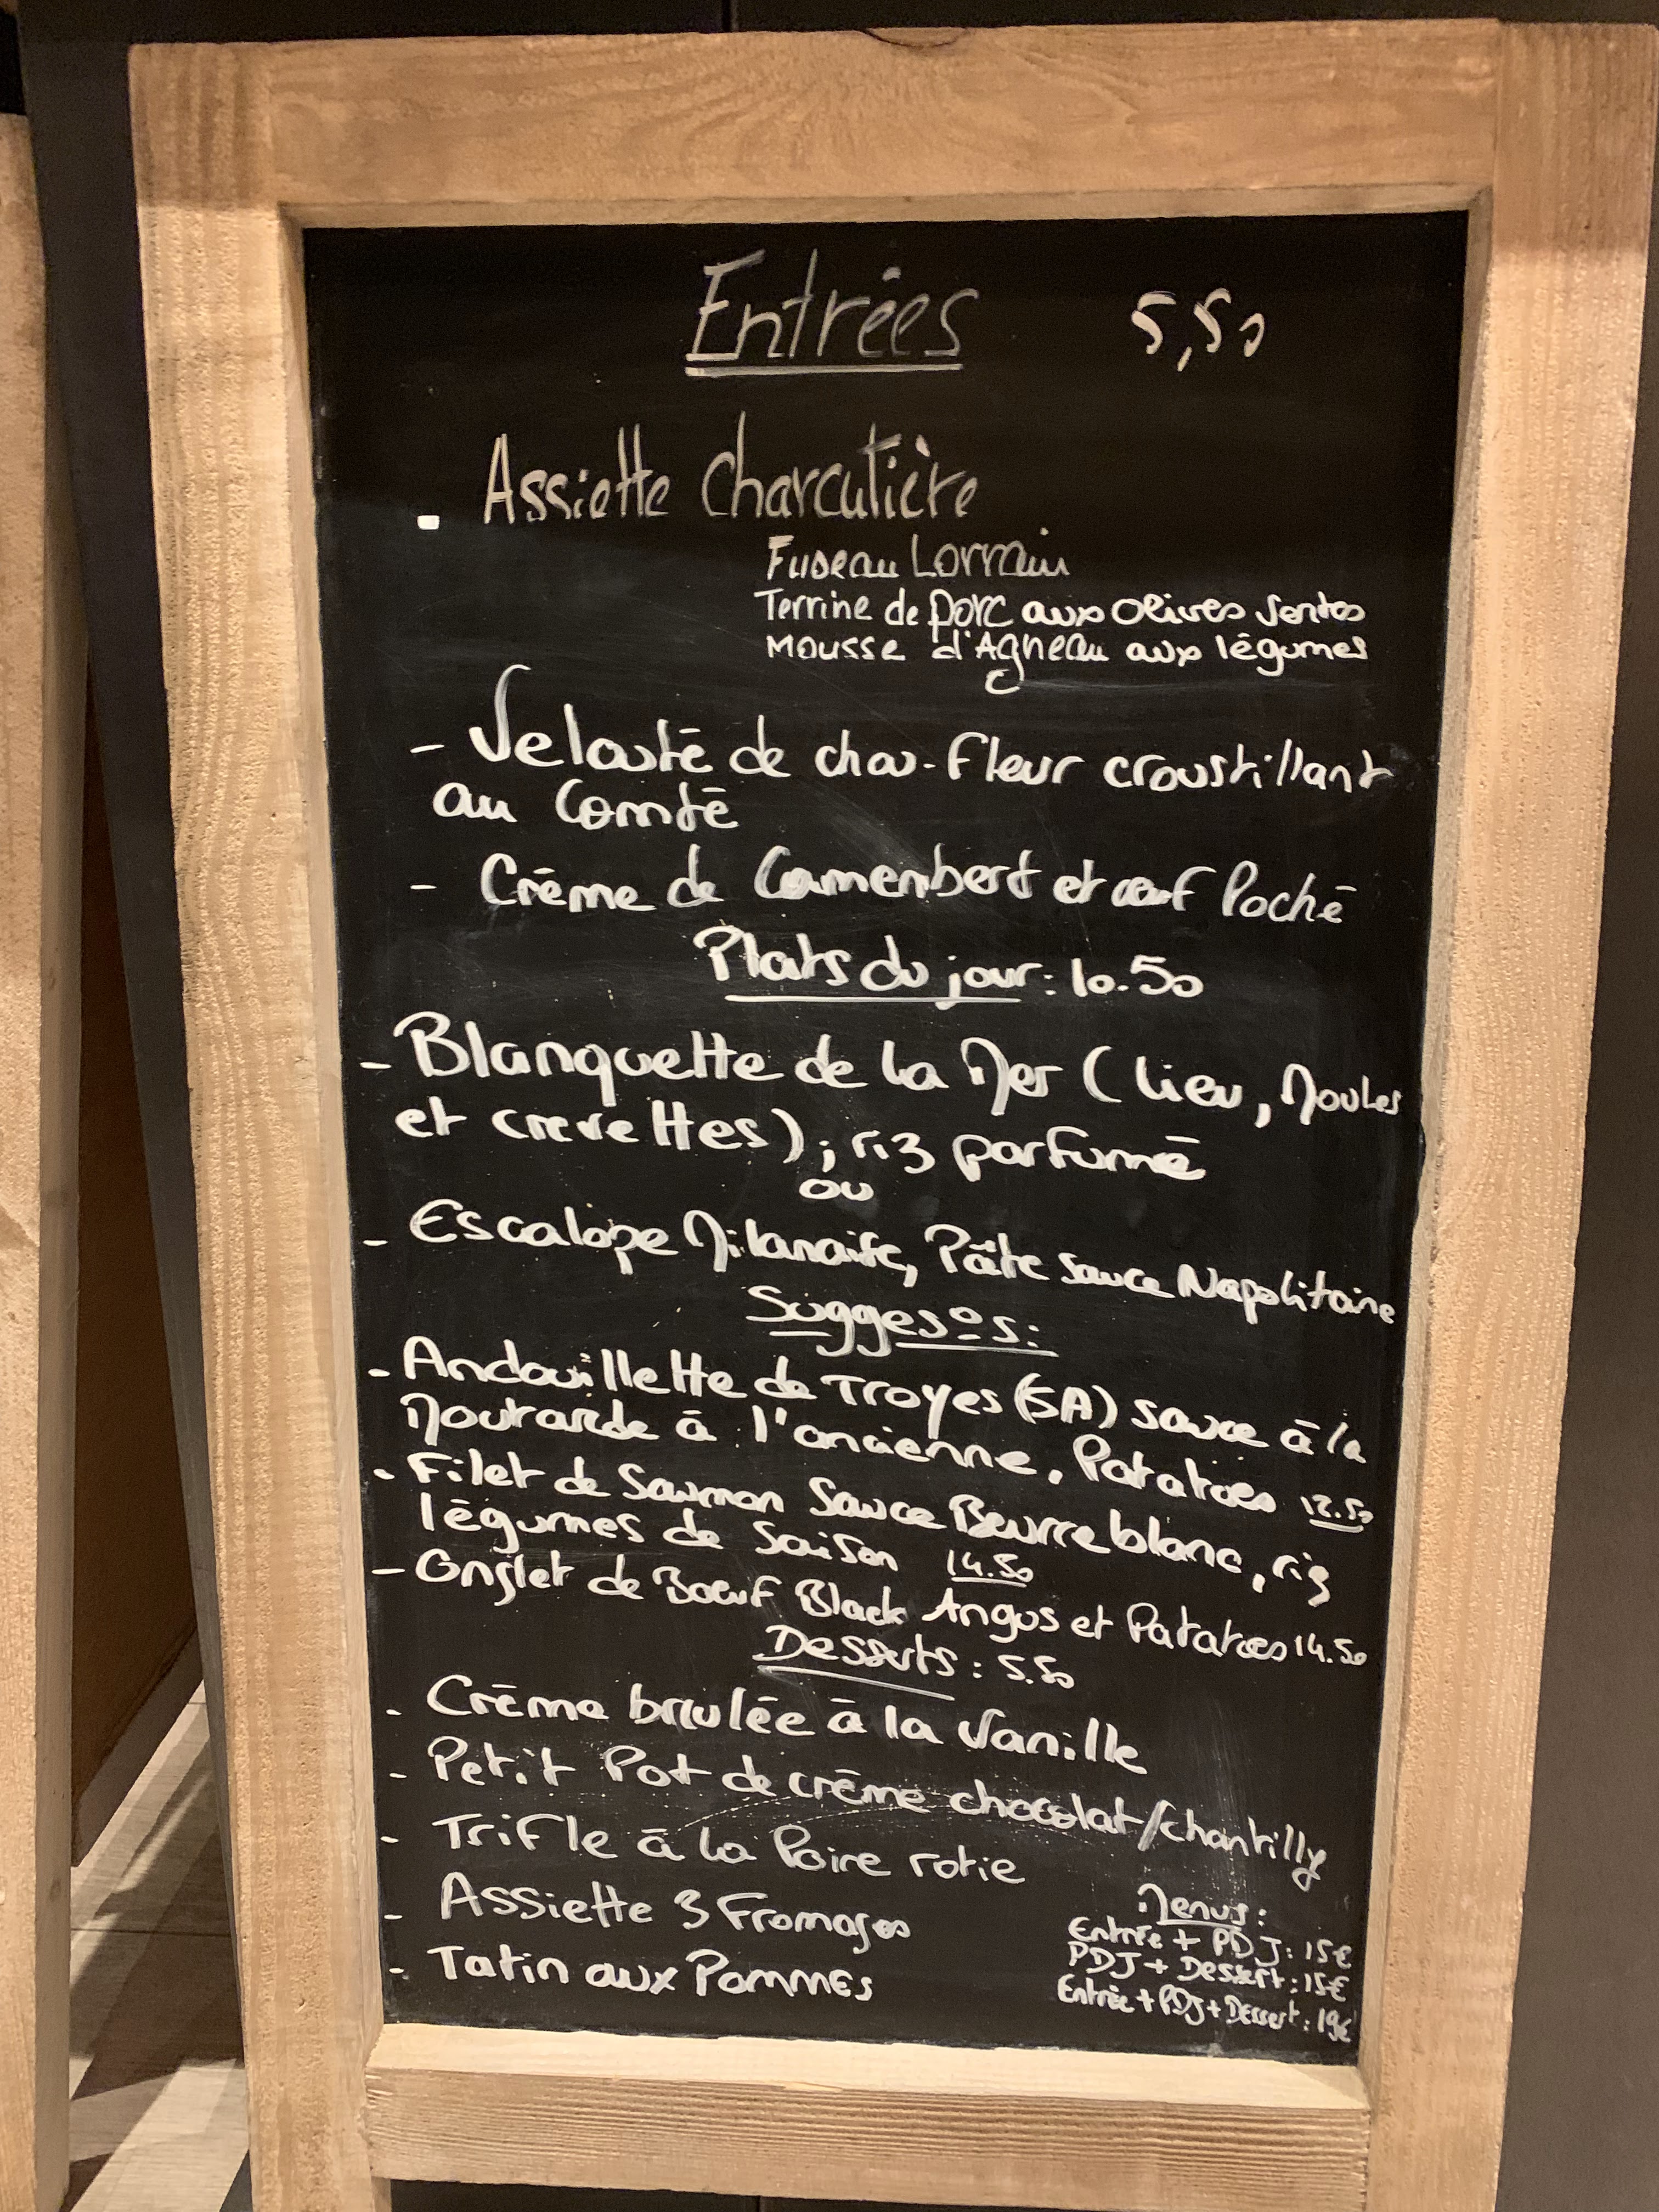 Entrées 5,50
- Assiette Charcutière
Fuseau Lorrain
Terrine de porc aux olives vertes
Mousse d'Agneau aux légumes
- Velouté de chou-fleur croustillant
au Comté
- Crème de Camembert et œuf Poché
Plats du jour : 10.50
- Blanquette de la Mer (lieu, Moules
et crevettes) ; riz parfumé
ou
- Escalope Milanaise, Pâte sauce Napolitaine
Sugges°s :
- Andouillette de Troyes (5A) sauce à la
Moutarde à l'ancienne, Patatoes
- Filet de Saumon Sauce Beurre blanc, riz
légumes de Saison 14.50
- Onglet de Bœuf Black Angus et Patatoes 14.50
Desserts : 5.50
- Crème brulée à la Vanille
- Petit Pot de crème chocolat/chantilly
- Trifle à la Poire rotie
- Assiette 3 Fromages
- Tatin aux Pommes
Menus :
Entrée + PDJ : 15€
PDJ + Dessert : 15€
Entrée + PDJ + Dessert : 19€